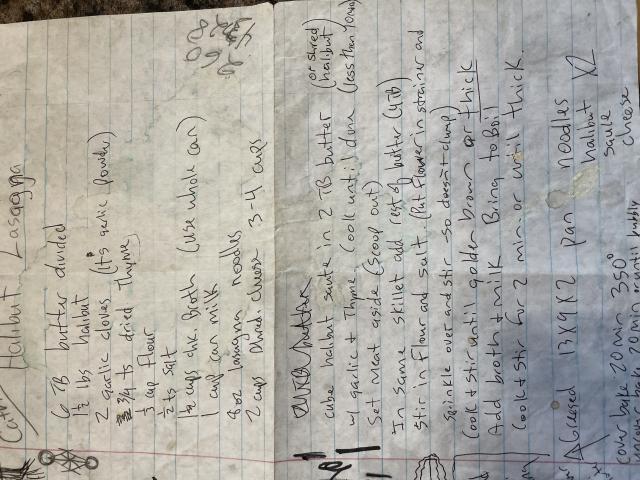 Halibut Lasagna
6 TB butter divided
1½ lbs halibut
2 garlic cloves (1ts garlic powder)
3/4 ts dried Thyme
⅓ cup flour
½ ts salt
1½ cups chic. broth (use whole can)
1 cup can milk
8oz lasagna noodles
2 cups shred. cheese 3-4 cups
cube halibut saute in 2 TB butter (or shred halibut)
w/ garlic + Thyme. Cook until done (less than 10 min)
Set meat aside (scoop out)
In same skillet add rest of butter (4TB)
Stir in flour and salt. (Put flower in strainer and
Sprinkle over and stir - so doesn't clump)
Cook + stir until golden brown or thick
Add broth + milk Bring to Boil
Cook + stir for 2 min or until thick.
Greased 13x9x2 pan
noodles
halibut X2
saule
cheese
cover bake 20 min 350°
bake 20 min or until bubbly